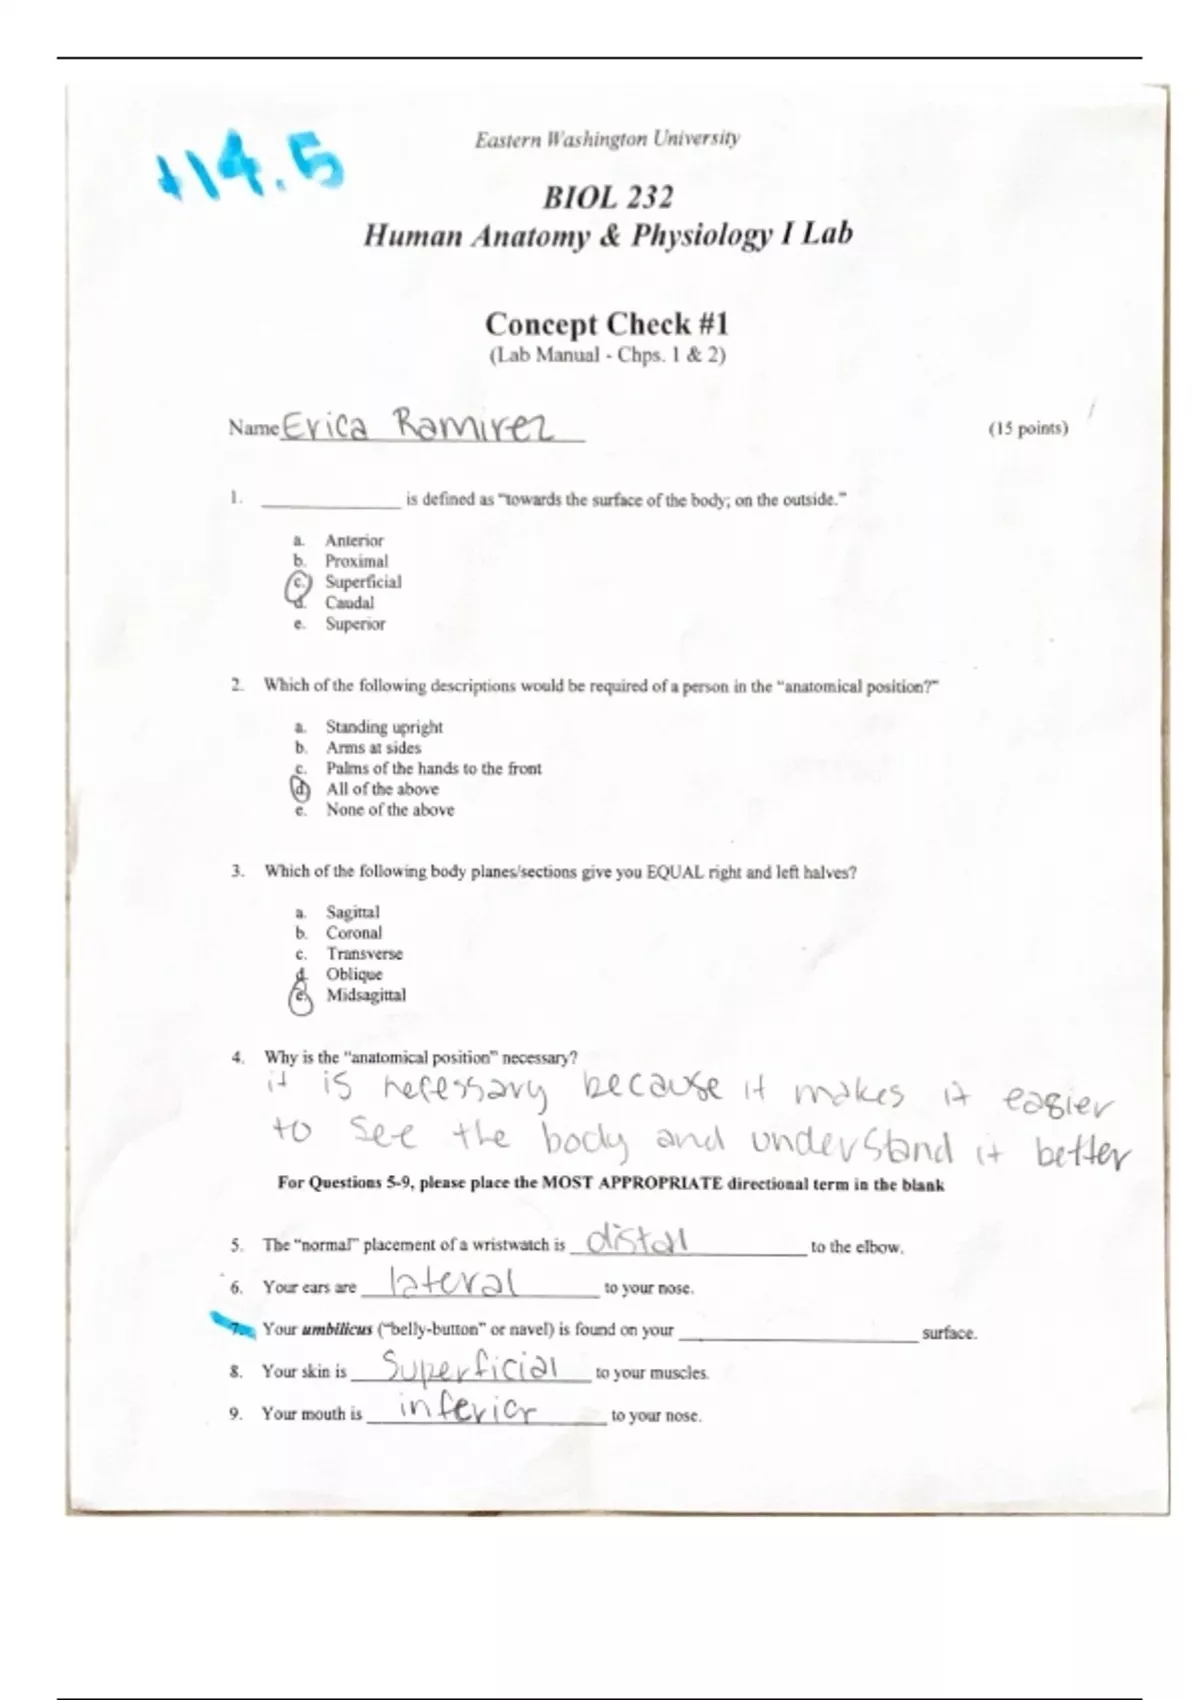 +14.5
Eastern Washington University
BIOL 232
Human Anatomy & Physiology I Lab
Concept Check #1
(Lab Manual - Chps. 1 & 2)
Name Erica Ramirez (15 points)
1. ____________ is defined as "towards the surface of the body; on the outside."
a. Anterior
b. Proximal
c. Superficial
d. Caudal
e. Superior
2. Which of the following descriptions would be required of a person in the "anatomical position?"
a. Standing upright
b. Arms at sides
c. Palms of the hands to the front
d. All of the above
e. None of the above
3. Which of the following body planes/sections give you EQUAL right and left halves?
a. Sagittal
b. Coronal
c. Transverse
d. Oblique
e. Midsagittal
4. Why is the "anatomical position" necessary?
it is necessary because it makes it easier
to see the body and understand it better
For Questions 5-9, please place the MOST APPROPRIATE directional term in the blank
5. The "normal" placement of a wristwatch is distal to the elbow.
6. Your ears are lateral to your nose.
7. Your umbilicus ("belly-button" or navel) is found on your ____________ surface.
8. Your skin is Superficial to your muscles.
9. Your mouth is inferior to your nose.